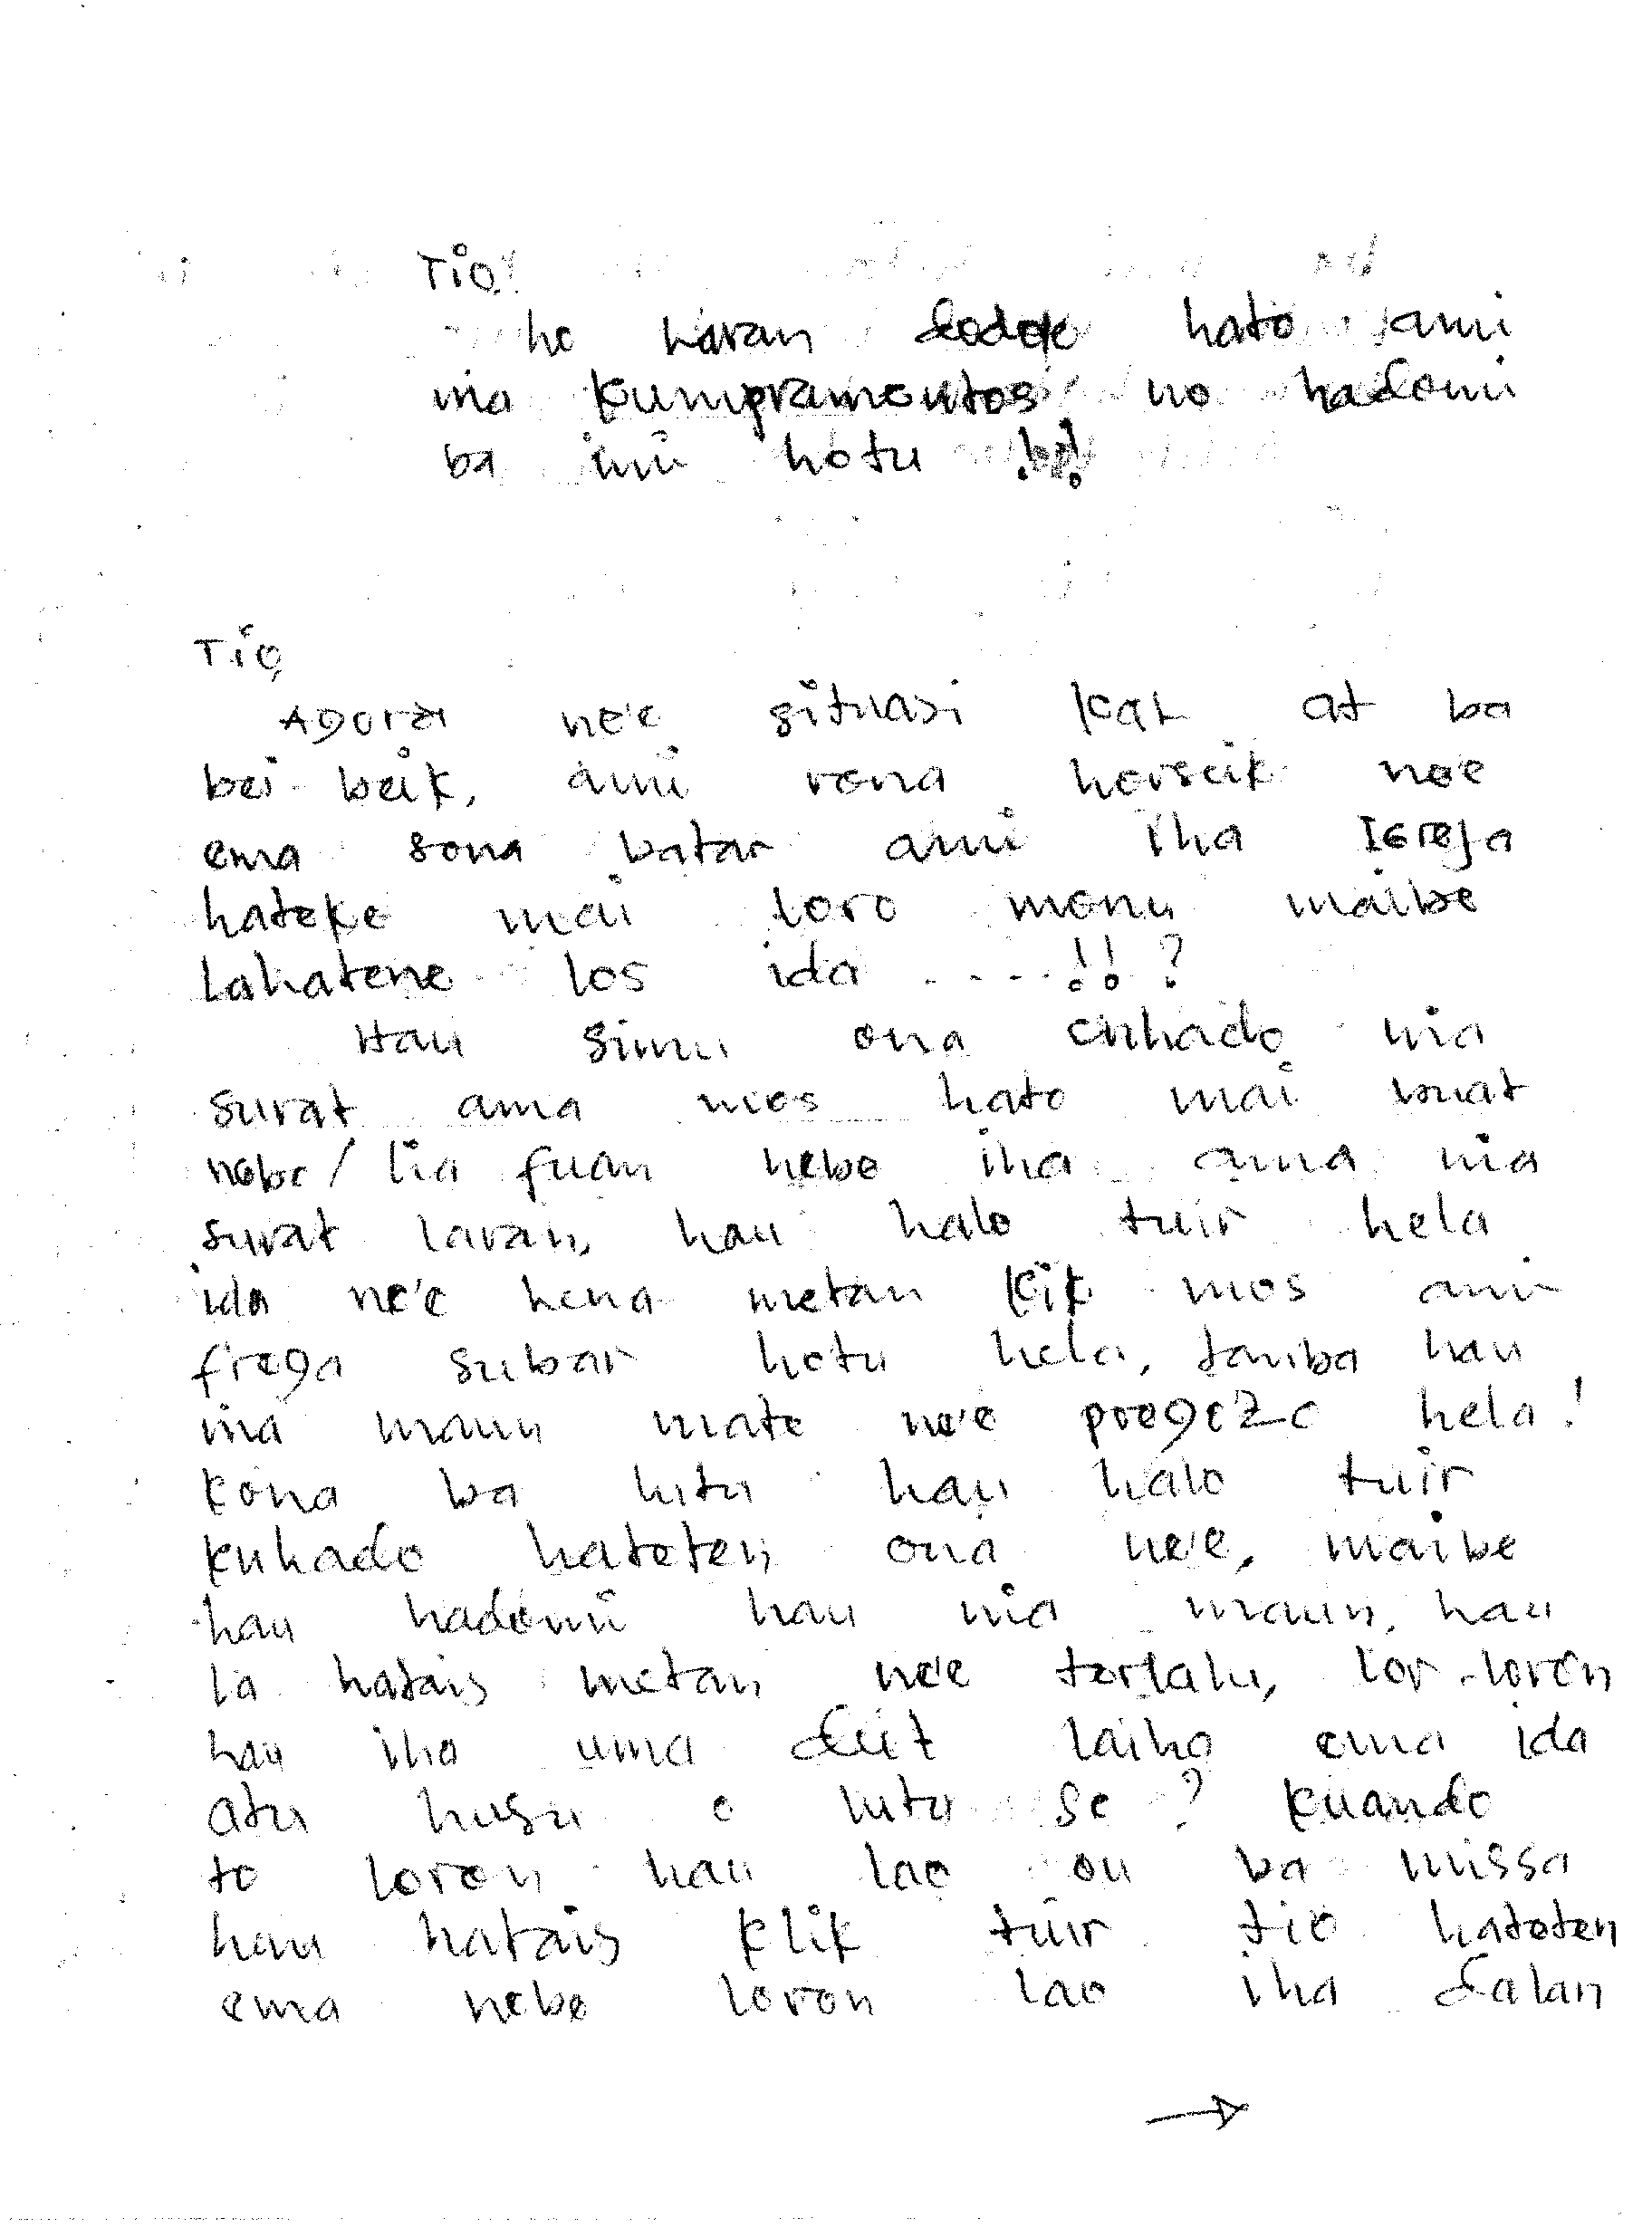 Tio!
ho laran dodok hato ami
nia kumpramentos no hadomi
ba imi hotu !!
Tio,
Agora ne'e situasi kat at ba
bei-beik, ami rona horseik ne'e
ema sona batar ami iha Igreja
hateke mai loro monu maibe
lahatene los ida ....!!?
Hau simu ona cuhado nia
surat ama mos hato mai buat
nebe / lia fuan nebe iha ama nia
surat laran, hau halo tuir hela
ida ne'e hena metan kik mos ami
frega subar hotu hela, tamba hau
nia maun mate ne'e pregezo hela!
kona ba lutu hau halo tuir
kuhado hateten ona ne'e, maibe
hau hadomi hau nia maun, hau
la hatais metan ne'e terlalu, lor-loron
hau iha uma deit laiha ema ida
atu husu o lutu se? kuando
to loron hau lao ou ba missa
hau hatais klik tuir tio hateten
ema nebe loron lao iha dalan
→